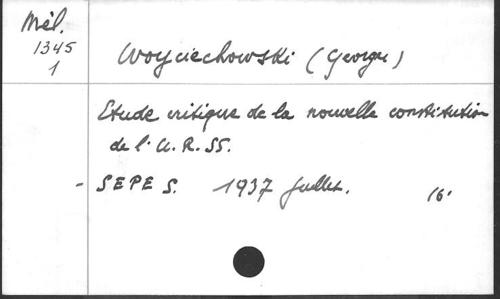 Mél.
1345
1
Woyciechowski (George)
Etude critique de la nouvelle constitution
de l'U.R.SS.
- SEPE S. 1937 Juillet. 16'